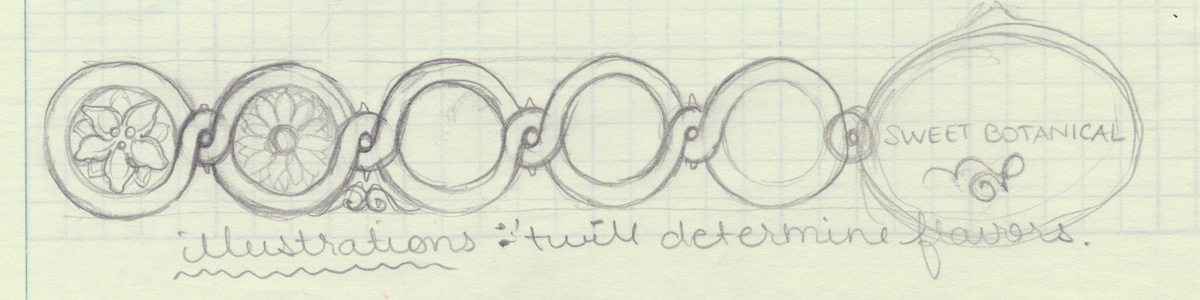 SWEET BOTANICAL
illustrations : 'twill determine flavors.